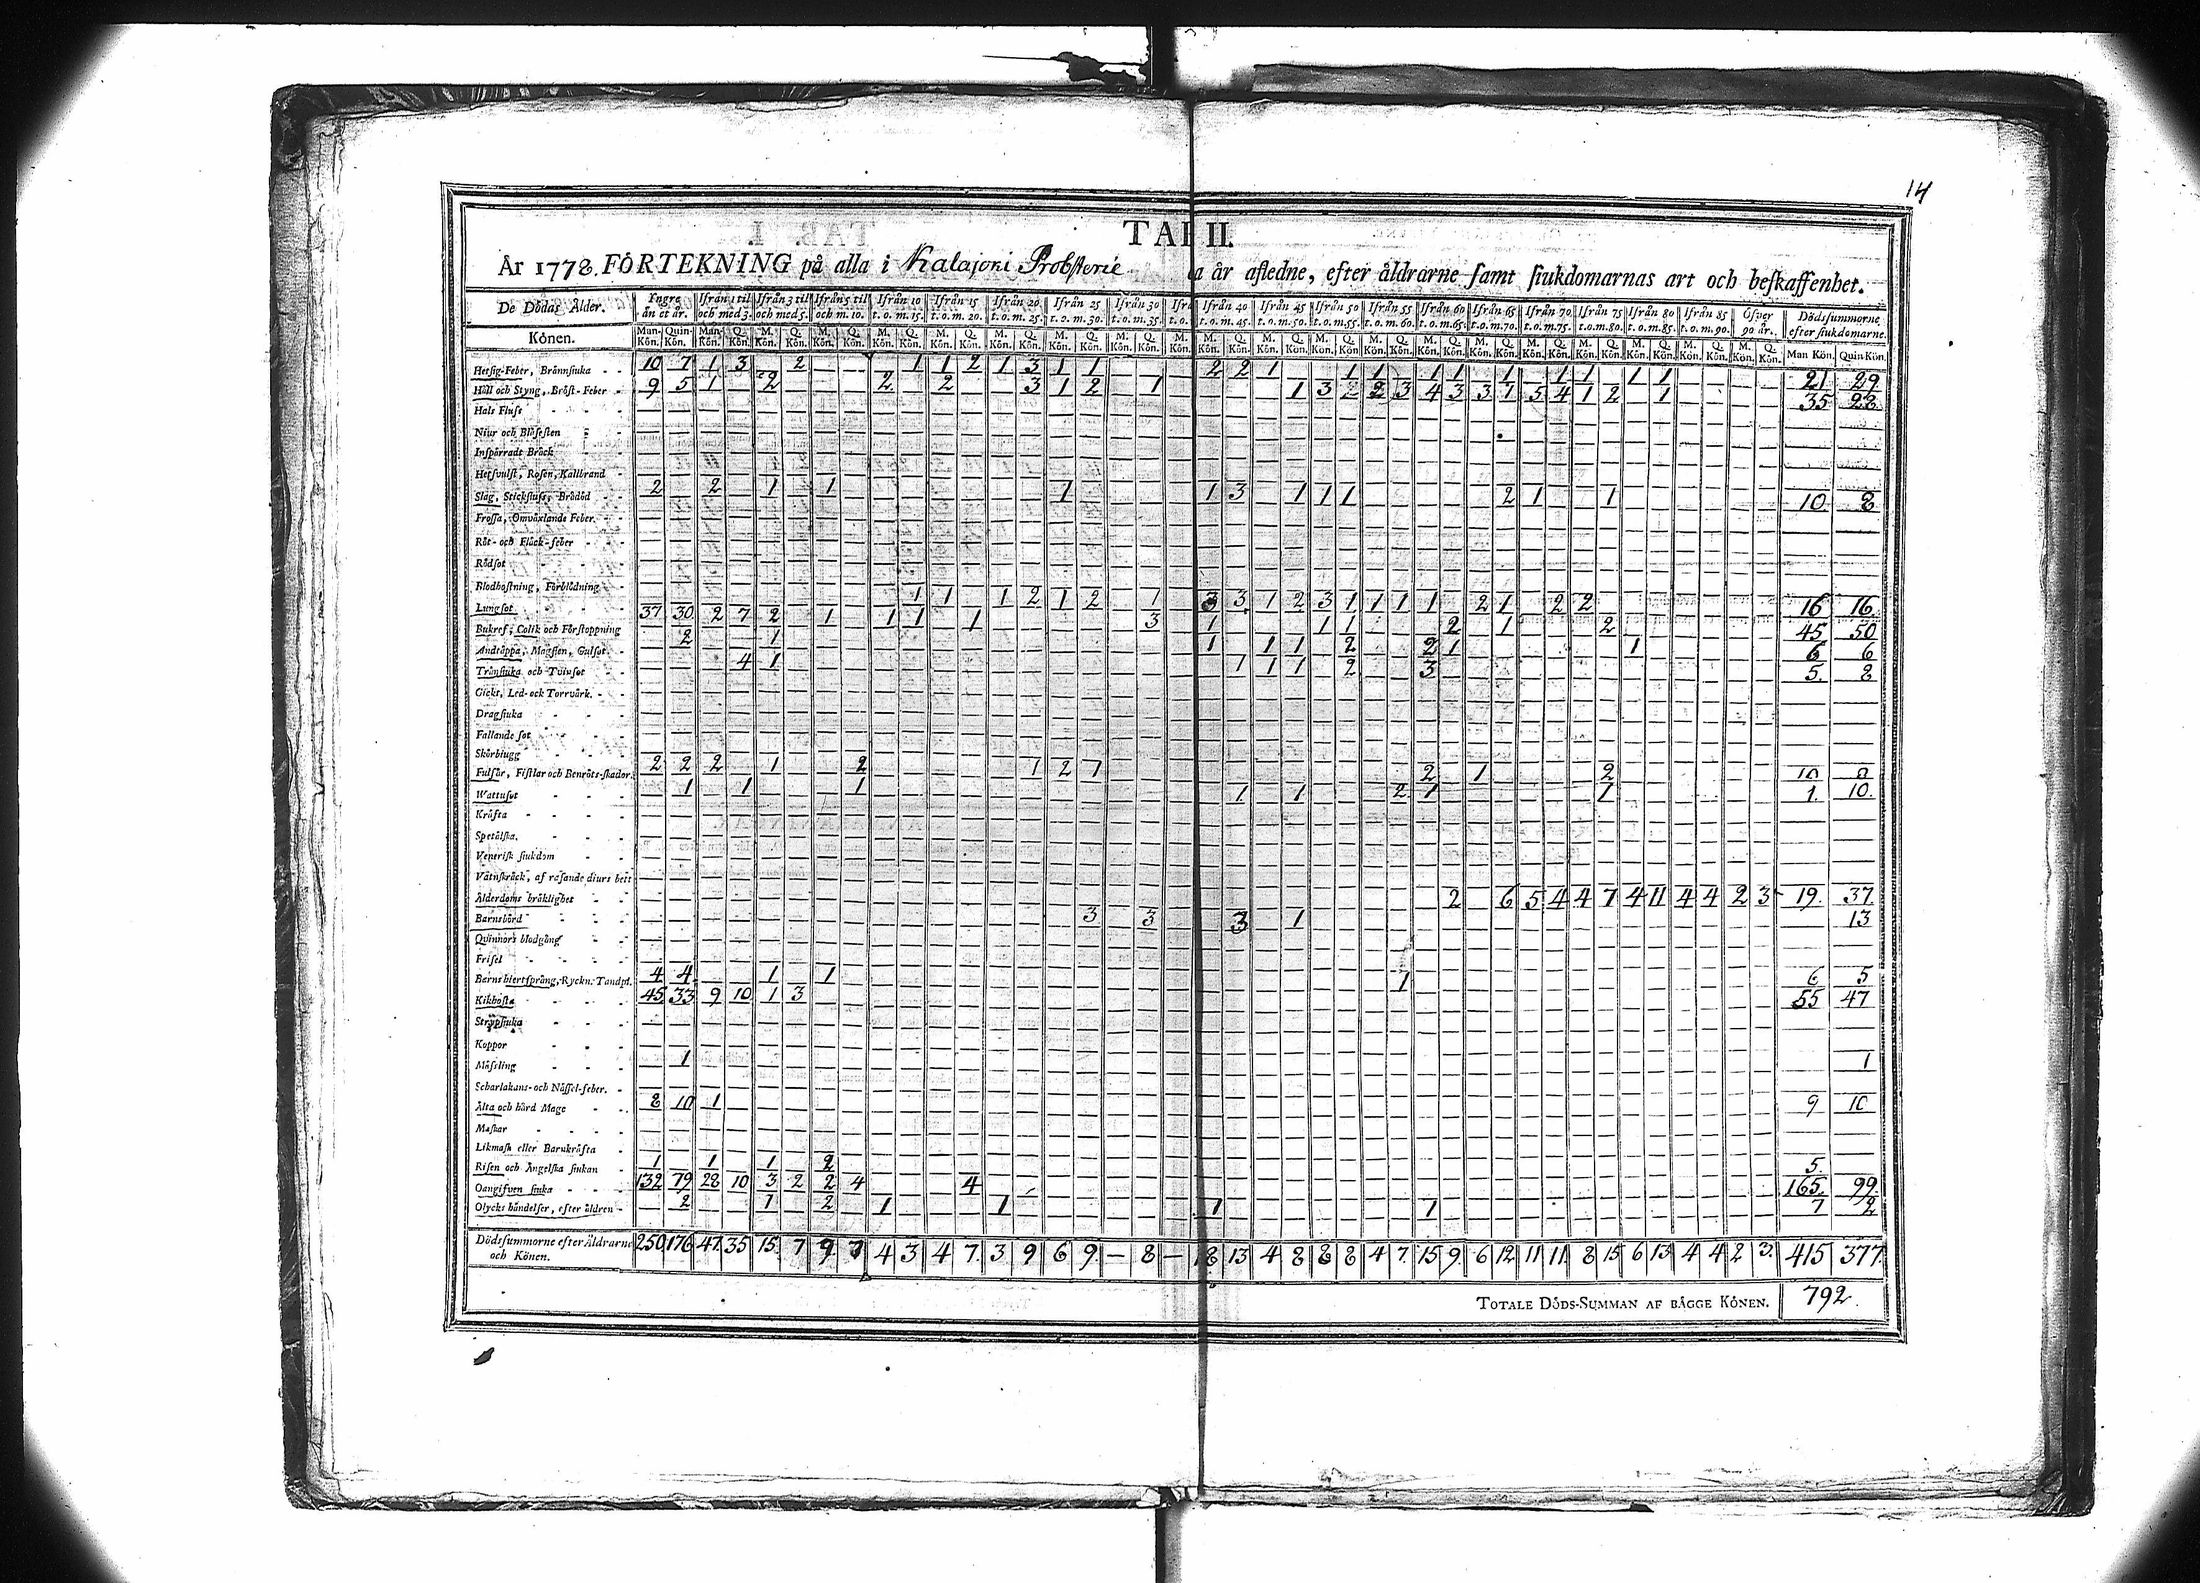 14
TAB II.
År 1778. FÖRTEKNING på alla i Kalajoki Probsterie a år afledne, efter åldrarne samt siukdomarnas art och beskaffenhet.
De Dödas Ålder. Yngre än et år. Ifrån 1 til och med 3. Ifrån 3 til och med 5. Ifrån 5 til och m. 10. Ifrån 10 t. o. m. 15. Ifrån 15 t. o. m. 20. Ifrån 20 t. o. m. 25. Ifrån 25 t. o. m. 30. Ifrån 30 t. o. m. 35. Ifrå t. o. Ifrån 40 t. o. m. 45. Ifrån 45 t. o. m. 50. Ifrån 50 t. o. m. 55. Ifrån 55 t. o. m. 60. Ifrån 60 t. o. m. 65. Ifrån 65 t. o. m. 70. Ifrån 70 t. o. m. 75. Ifrån 75 t. o. m. 80. Ifrån 80 t. o. m. 85. Ifrån 85 t. o. m. 90. Öfver 90 år. Dödssummorne efter siukdomarne.
Könen. Man-Kön. Quin-Kön. Man-Kön. Q. Kön. M. Kön. Q. Kön. M. Kön. Q. Kön. M. Kön. Q. Kön. M. Kön. Q. Kön. M. Kön. Q. Kön. M. Kön. Q. Kön. M. Kön. Q. Kön. M. Kön. M. Kön. Q. Kön. M. Kön. Q. Kön. M. Kön. Q. Kön. M. Kön. Q. Kön. M. Kön. Q. Kön. M. Kön. Q. Kön. M. Kön. Q. Kön. M. Kön. Q. Kön. M. Kön. Q. Kön. M. Kön. Q. Kön. M. Kön. Q. Kön. Man Kön. Quin Kön.
Hetsig-Feber, Brännsiuka 10 7 1 3 2 1 1 2 1 3 1 1 2 2 1 1 1 1 1 1 1 1 1 1 21 29
Håll och Styng, Bröst-Feber 9 5 1 2 2 2 3 1 2 1 1 3 2 2 3 4 3 3 1 5 4 1 2 1 35 28
Hals Fluss
Niur och Blåsesten
Inspärradt Bråck
Hetsvulst, Rosen, Kallbrand
Slag, Stickfluss, Brådöd 2 2 1 1 1 1 3 1 1 1 2 1 1 10 8
Frossa, Omväxlande Feber.
Röt- och Fläck-feber
Rödsot
Blodhostning, Förblödning
Lungsot 1 1 1 2 1 2 1 3 3 1 2 3 1 1 1 1 2 1 2 2 16 16
Bukref, Colik och Förstoppning 37 30 2 7 2 1 1 1 1 3 1 1 1 2 1 2 45 50
Andtäppa, Magsien, Gulsot 2 1 1 1 1 2 2 1 1 6 6
Trånsiuka och Tvinsot 4 1 1 1 1 2 3 5 8
Gickt, Led- och Torrvärk.
Dragsiuka
Fallande sot
Skörbiugg
Fulsår, Fistlar och Benröts-skador. 2 2 2 1 2 1 2 1 2 1 2 10 8
Wattusot 1 1 1 1 1 2 1 1 1. 10.
Kräfta
Spetälska.
Venerisk siukdom
Vatnskräck, af rasande diurs bett
Ålderdoms bräklighet 2 6 5 4 4 7 4 11 4 4 2 3 19. 37.
Barnsbörd 3 3 3 1 13
Qvinnors blodgång
Frisel
Barns hiertsprång, Ryckn. Tandpl. 4 4 1 1 1 6 5
Kikhosta 45 33 9 10 1 3 55 47
Strypsiuka
Koppor
Mässling 1 1
Scharlakans- och Nässel-feber.
Älta och hård Mage 8 10 1 9 10
Maskar
Likmask eller Barnkräfta
Risen och Ängelska siukan 1 1 1 2 5.
Oangifven siuka 132 79 28 10 3 2 2 4 4 165 99
Olycks händelser, efter åldren 2 1 2 1 1 1 1 7 2
Dödssummorne efter Åldrarne och Könen. 250 176 47. 35 15. 7 9 7 4 3 4 7. 3 9 6 9. — 8 — 8 13 4 8 8 8 4 7. 15 9. 6 12 11 11. 8 15 6 13 4 4 2 3. 415 377.
TOTALE DÖDS-SUMMAN AF BÄGGE KÖNEN. 792.